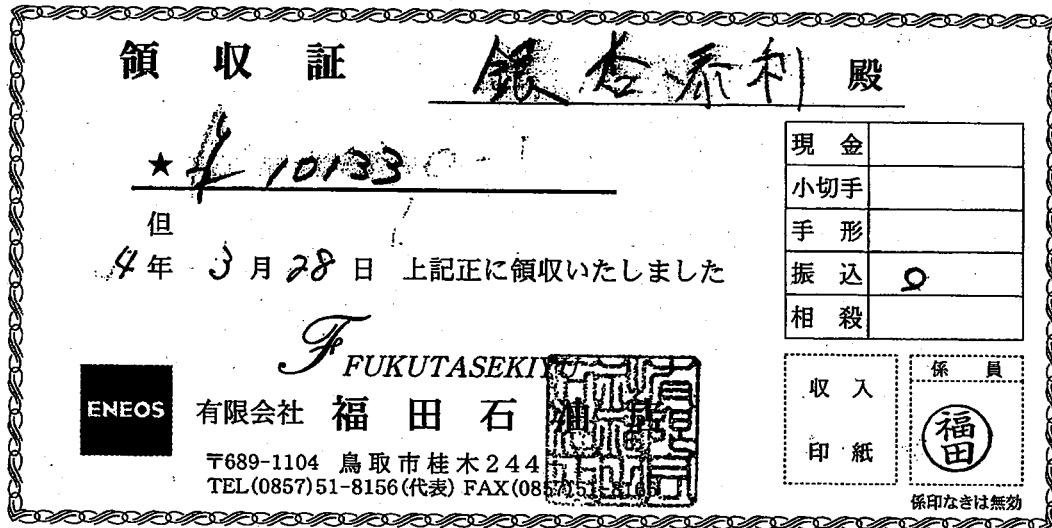 領収証 銀杏泰利 殿
★ ¥10133
但
4年 3月28日 上記正に領収いたしました
現金
小切手
手形
振込 ○
相殺
FUKUTASEKIYU
ENEOS
有限会社 福田石油店
〒689-1104 鳥取市桂木244
TEL(0857)51-8156(代表) FAX(0857)51-8165
収入
印紙
係員
福田
係印なきは無効